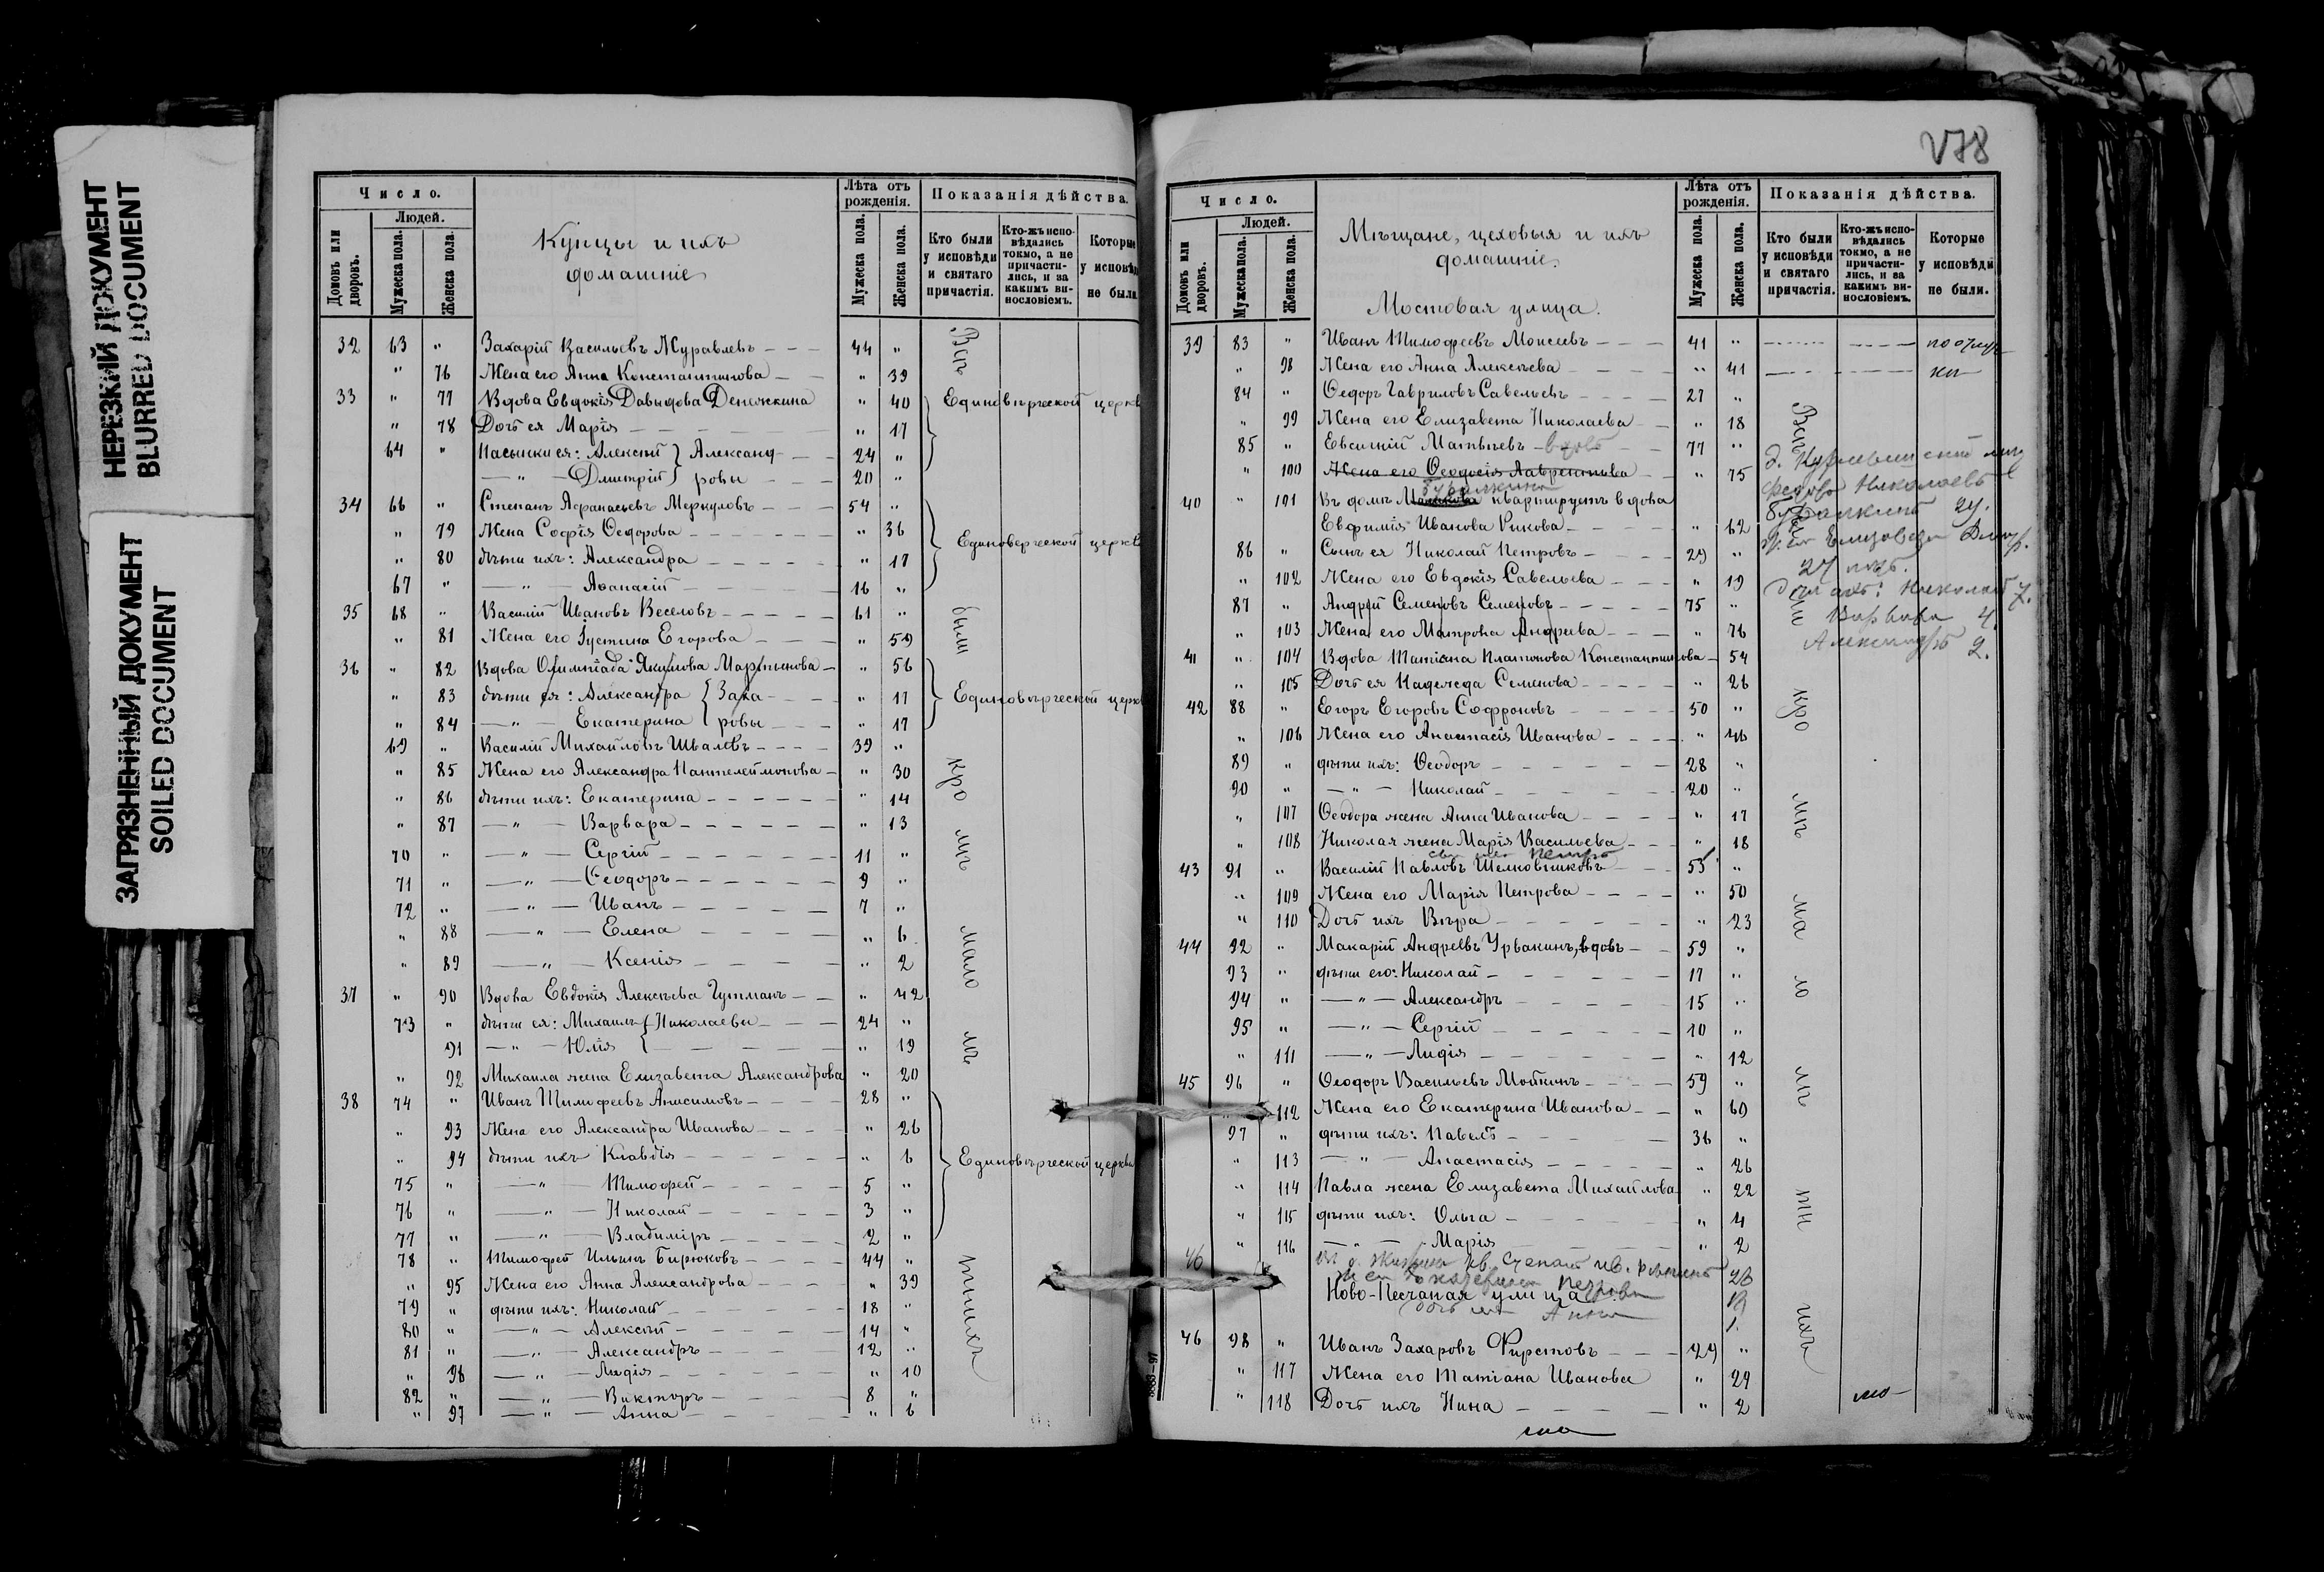 НЕРЕЗКИЙ ДОКУМЕНТ
BLURRED DOCUMENT
ЗАГРЯЗНЕННЫЙ ДОКУМЕНТ
SOILED DOCUMENT
Число.
Людей.
Домовъ или дворовъ.
Мужеска пола.
Женска пола.
Купцы и ихъ
домашніе
Лѣта отъ рожденія.
Мужеска пола.
Женска пола.
Показанія дѣйства.
Кто были у исповѣди и святаго причастія.
Кто-жъ исповѣдались токмо, а не причастились, и за какимъ винословіемъ.
Которые у исповѣди не были.
32 63 " Захарій Васильевъ Журавлевъ 44 "
" 76 Жена его Анна Константинова " 39
33 " 77 Вдова Евдокія Давыдова Денежкина " 40 Единовѣрческой церкв
" 78 Дочь ея Марія " 17
64 " Пасынки ея: Алексѣй } Александ- 24 "
— " — Дмитрій } ровы 20 "
34 66 " Степанъ Аѳанасьевъ Меркуловъ 54 "
" 79 Жена Софія Ѳедорова " 36 Единоверческой церкв
" 80 дѣти ихъ: Александра " 17
67 " — " — Аѳанасій 16 "
35 68 " Василій Ивановъ Веселовъ 61 "
" 81 Жена его Іустина Егорова " 59
36 " 82 Вдова Олимпіада Якимова Мартынова " 56
" 83 дѣти ея: Александра { Заха- " 17 Единовѣрческой церкв
" 84 — " — Екатерина { ровы " 17
69 " Василій Михайловъ Швалевъ 39 "
" 85 Жена его Александра Пантелеймонова " 30
" 86 дѣти ихъ: Екатерина " 14
" 87 — " — Варвара " 13
70 " — " — Сергій 11 "
71 " — " — Ѳеодоръ 9 "
72 " — " — Иванъ 7 "
" 88 — " — Елена " 6
" 89 — " — Ксенія " 2
37 " 90 Вдова Евдокія Алексѣева Гутманъ " 42
73 " дѣти ея: Михаилъ { Николаевы 24 "
91 — " — Юлія { " 19
" 92 Михаила жена Елизавета Александрова " 20
38 74 " Иванъ Тимофеевъ Анисимовъ 28 "
" 93 Жена его Александра Иванова " 26
" 94 дѣти ихъ Клавдія " 6 Единовѣрческой церкви
75 " — " — Тимофей 5 "
76 " — " — Николай 3 "
77 " — " — Владиміръ 2 "
78 " Тимофей Ильинъ Бирюковъ 44 "
" 95 Жена его Анна Александрова " 39
79 " дѣти ихъ: Николай 18 "
80 " — " — Алексѣй 14 "
81 " — " — Александръ 12 "
" 96 — " — Лидія " 10
82 " — " — Викторъ 8 "
" 97 — " — Анна " 6
Всѣ были кромѣ малолѣтнихъ
V78
Число.
Людей.
Домовъ или дворовъ.
Мужеска пола.
Женска пола.
Мѣщане, цеховыя и ихъ
домашніе.
Мостовая улица.
Лѣта отъ рожденія.
Мужеска пола.
Женска пола.
Показанія дѣйства.
Кто были у исповѣди и святаго причастія.
Кто-жъ исповѣдались токмо, а не причастились, и за какимъ винословіемъ.
Которые у исповѣди не были.
39 83 " Иванъ Тимофеевъ Моисеевъ 41 " по отлуч
" 98 Жена его Анна Алексѣева " 41 ки
84 " Ѳедоръ Гавриловъ Савельевъ 27 "
" 99 Жена его Елизавета Николаева " 18
85 " Евсигній Матвѣевъ вдовъ 77 "
" 100 Жена его Ѳеодосія Лаврентьева " 75
40 " 101 Въ домѣ квартируетъ вдова
Евфимія Иванова Рикова " 62
86 " Сынъ ея Николай Петровъ 29 "
" 102 Жена его Евдокія Савельева " 19
87 " Андрей Семеновъ Семеновъ 75 "
" 103 Жена его Матрона Андреева " 76
41 " 104 Вдова Татіана Платонова Константинова 54
" 105 Дочь ея Надежда Семенова " 26
42 88 " Егоръ Егоровъ Софроновъ 50 "
" 106 Жена его Анастасія Иванова " 46
89 " дѣти ихъ: Ѳеодоръ 28 "
90 " — " — Николай 20 "
" 107 Ѳеодора жена Анна Иванова " 17
" 108 Николая жена Марія Васильева " 18
43 91 " Василій Павловъ Шелковниковъ 55 "
" 109 Жена его Марія Петрова " 50
" 110 Дочь ихъ Вѣра " 23
44 92 " Макарій Андреевъ Урвакинъ, вдовъ 59 "
93 " дѣти его: Николай 17 "
94 " — " — Александръ 15 "
95 " — " — Сергій 10 "
" 111 — " — Лидія " 12
45 96 " Ѳеодоръ Васильевъ Мошкинъ 59 "
112 Жена его Екатерина Иванова " 60
97 " дѣти ихъ: Павелъ 36 "
" 113 — " — Анастасія " 26
" 114 Павла жена Елизавета Михайлова " 22
" 115 дѣти ихъ: Ольга " 4
" 116 — " — Марія " 2
Ново-Песчаная улица
46 98 " Иванъ Захаровъ Фирстовъ 29 "
" 117 Жена его Татіана Иванова " 29
" 118 Дочь ихъ Нина " 2
Николай 7.
Варвара 4.
Александръ 2.
Всѣ были кромѣ малолѣтнихъ